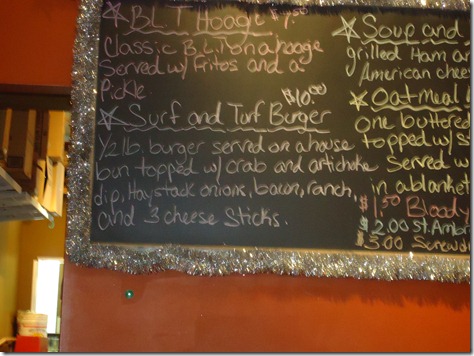 B.L.T Hoagie $7.50
Classic B.L.T on a hoage
Served w/ Fritos and a
Pickle
$10.00
Surf and Turf Burger
1/2 lb. burger served on a house
bun topped w/ crab and artichoke
dip, Haystack onions, bacon, ranch,
and 3 cheese sticks.
Soup and
grilled Ham an
American chee
Oatmeal
One buttered
topped w/ s
Served w
in a blanket
$1.50 Bloody
$2.00 St. Amb
$3.00 Screw